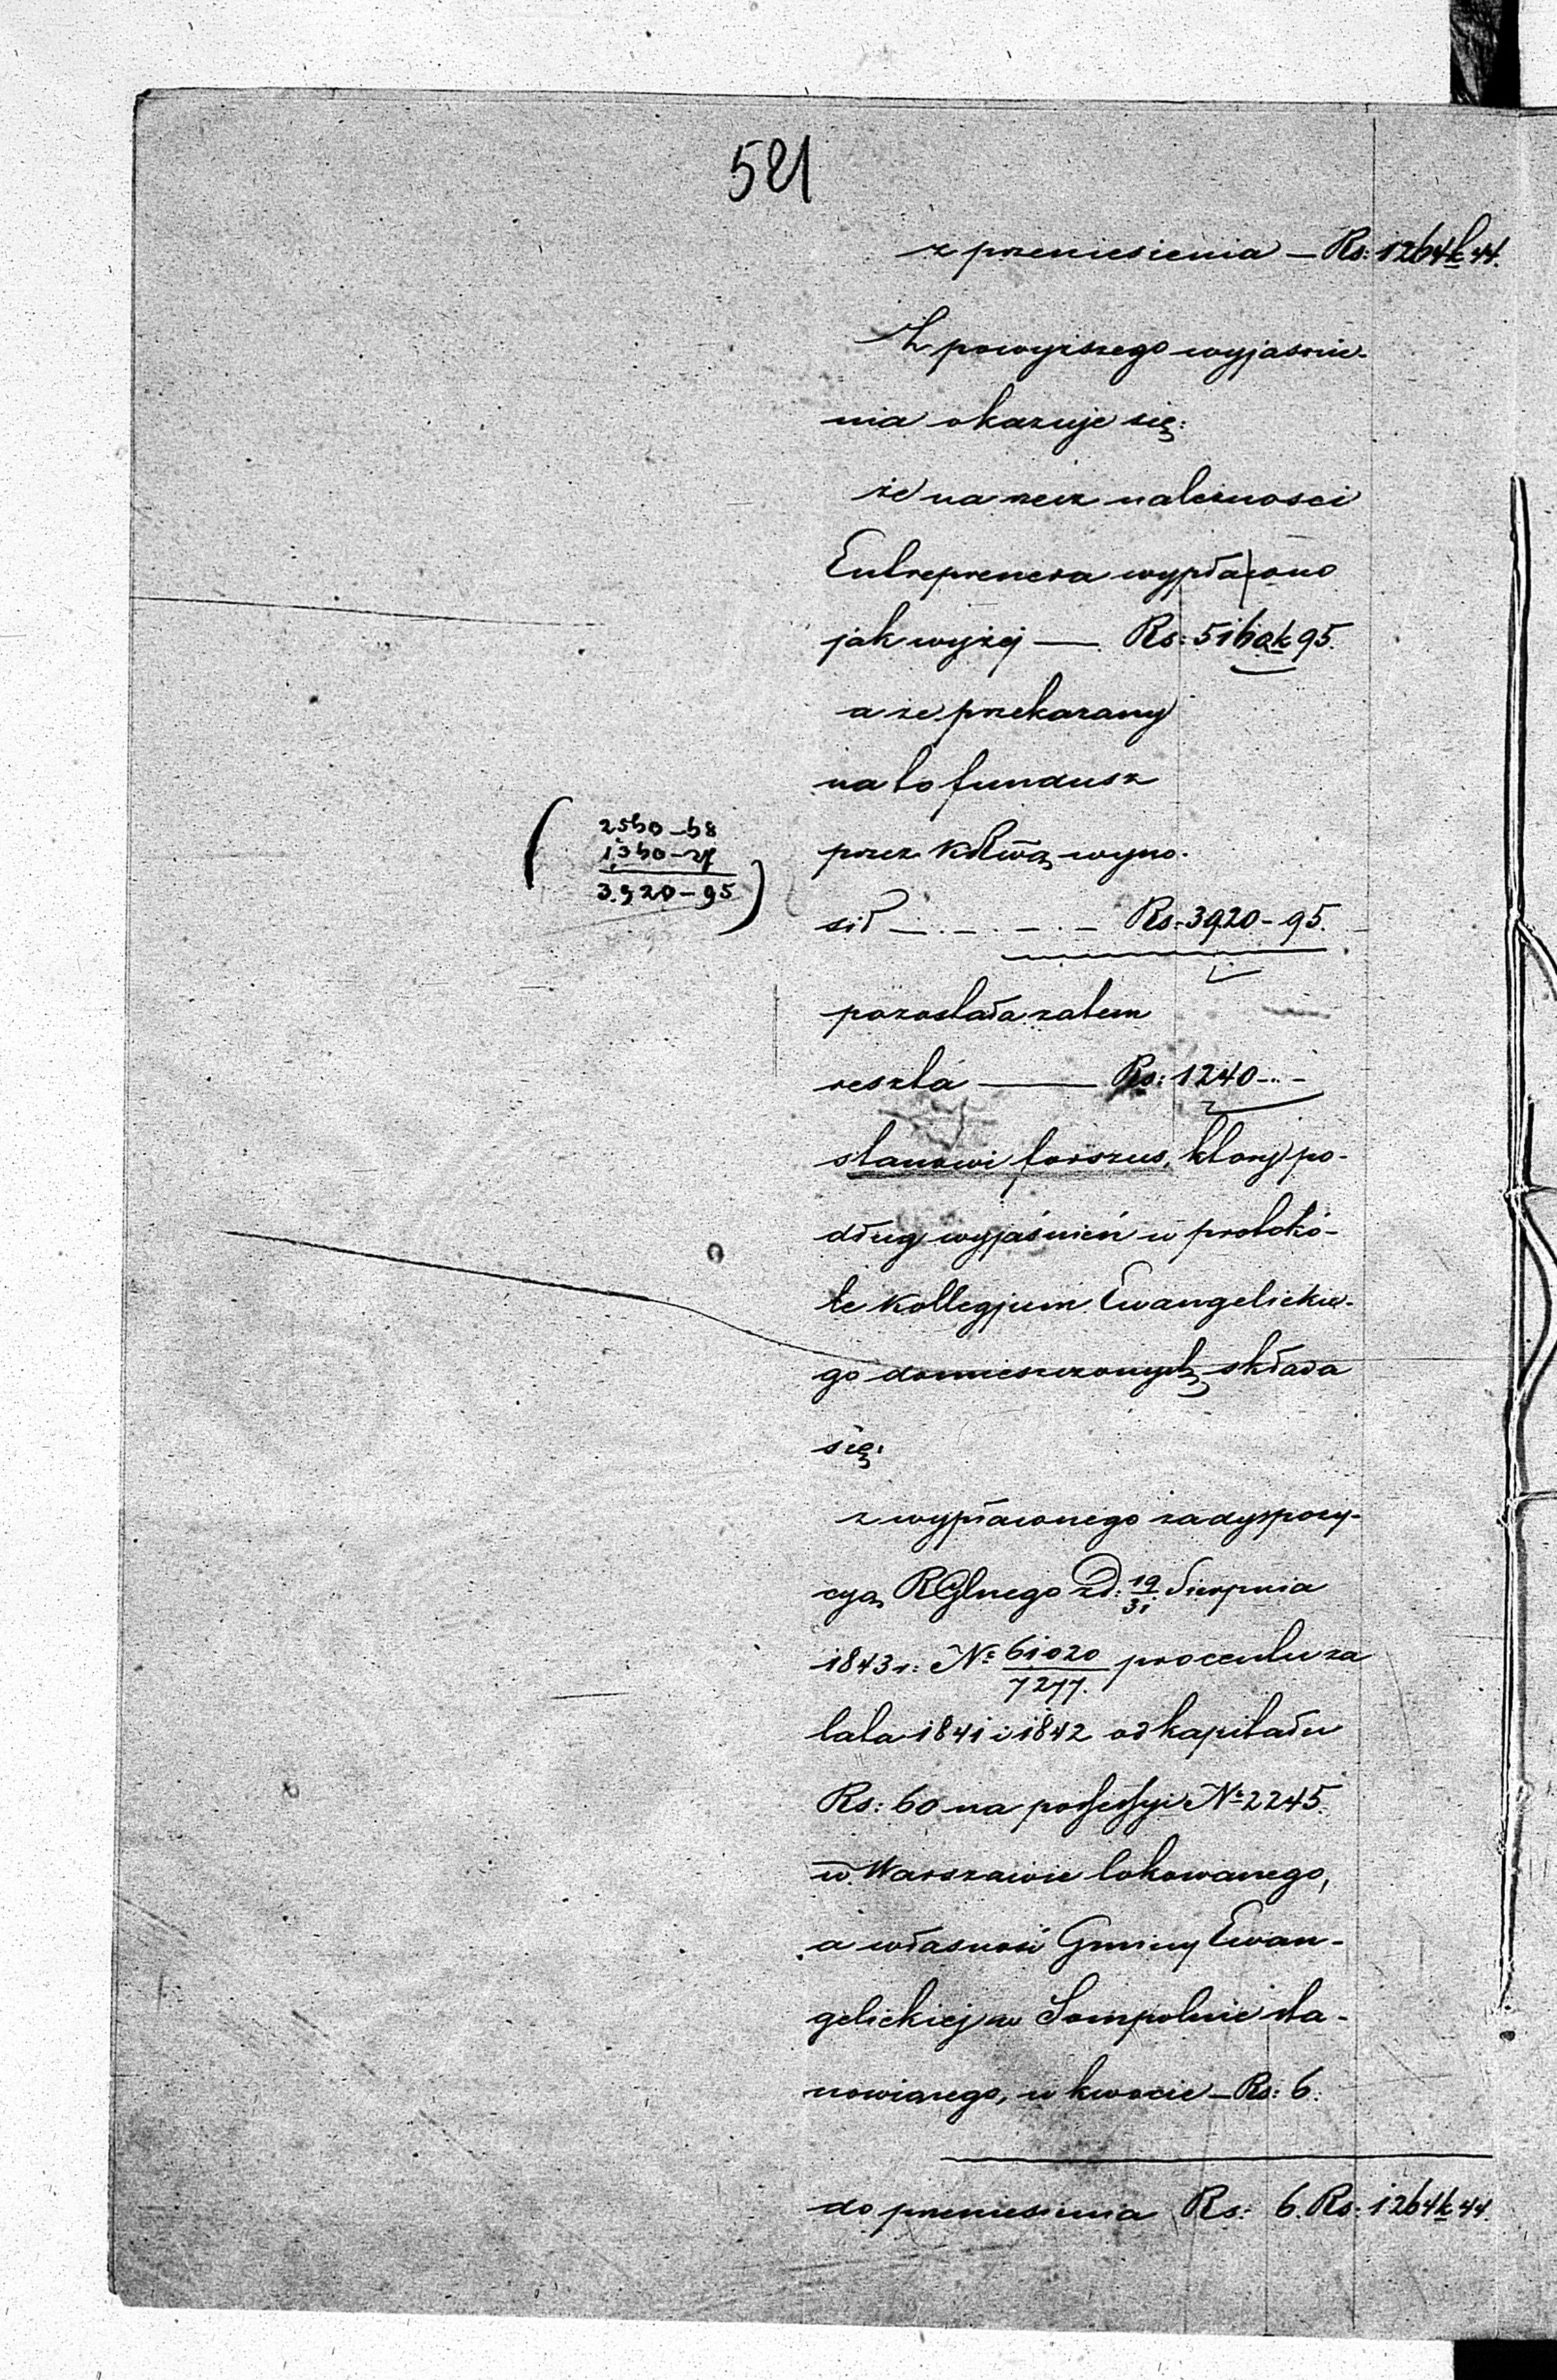 521
z przeniesienia — Rs: 1264 k 44.
Z powyższego wyjaśnie-
nia okazuje się:
że na rzecz należności
Entreprenera wypłacono
jak wyżej — Rs: 5160 k 95.
a że przekazany
na to fundusz
przez wyno-
2560 – 68
1,360 – 27
3.920 – 95
sił — . — . — . — Rs. 3920 – 95.
pozostała zatem
reszta — Rs: 1240 - .. -
stanowi forszus, który po-
dług wyjaśnień w protokó-
le Kollegjum Ewangelickie-
go domieszczonych, składa
się:
z wypłaconego za dyspozy-
cyą RGlnego z d: 19/31 Sierpnia
1843 r: № 61020/7277. procentu za
lata 1841 i 1842 od kapitału
Rs: 60 na possessyi № 2245.
w Warszawie lokowanego,
a własność Gminy Ewan-
gelickiej w Sompolnie sta-
nowiącego, w kwocie — Rs: 6.
do przeniesienia Rs: 6. Rs: 1264 k 44.